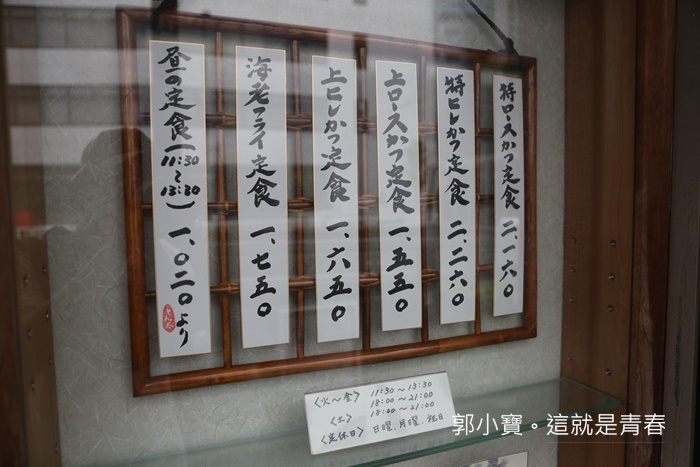 特ロースかつ定食 二、一六〇
特ヒレかつ定食 二、二六〇
上ロースかつ定食 一、五五〇
上ヒレかつ定食 一、六五〇
海老フライ定食 一、七五〇
昼の定食(11:30〜13:30) 一、〇二〇より
〈火〜金〉 11:30〜13:30
18:00〜21:00
〈土〉 18:00〜21:00
〈定休日〉 日曜.月曜.祝日
郭小寶。這就是青春